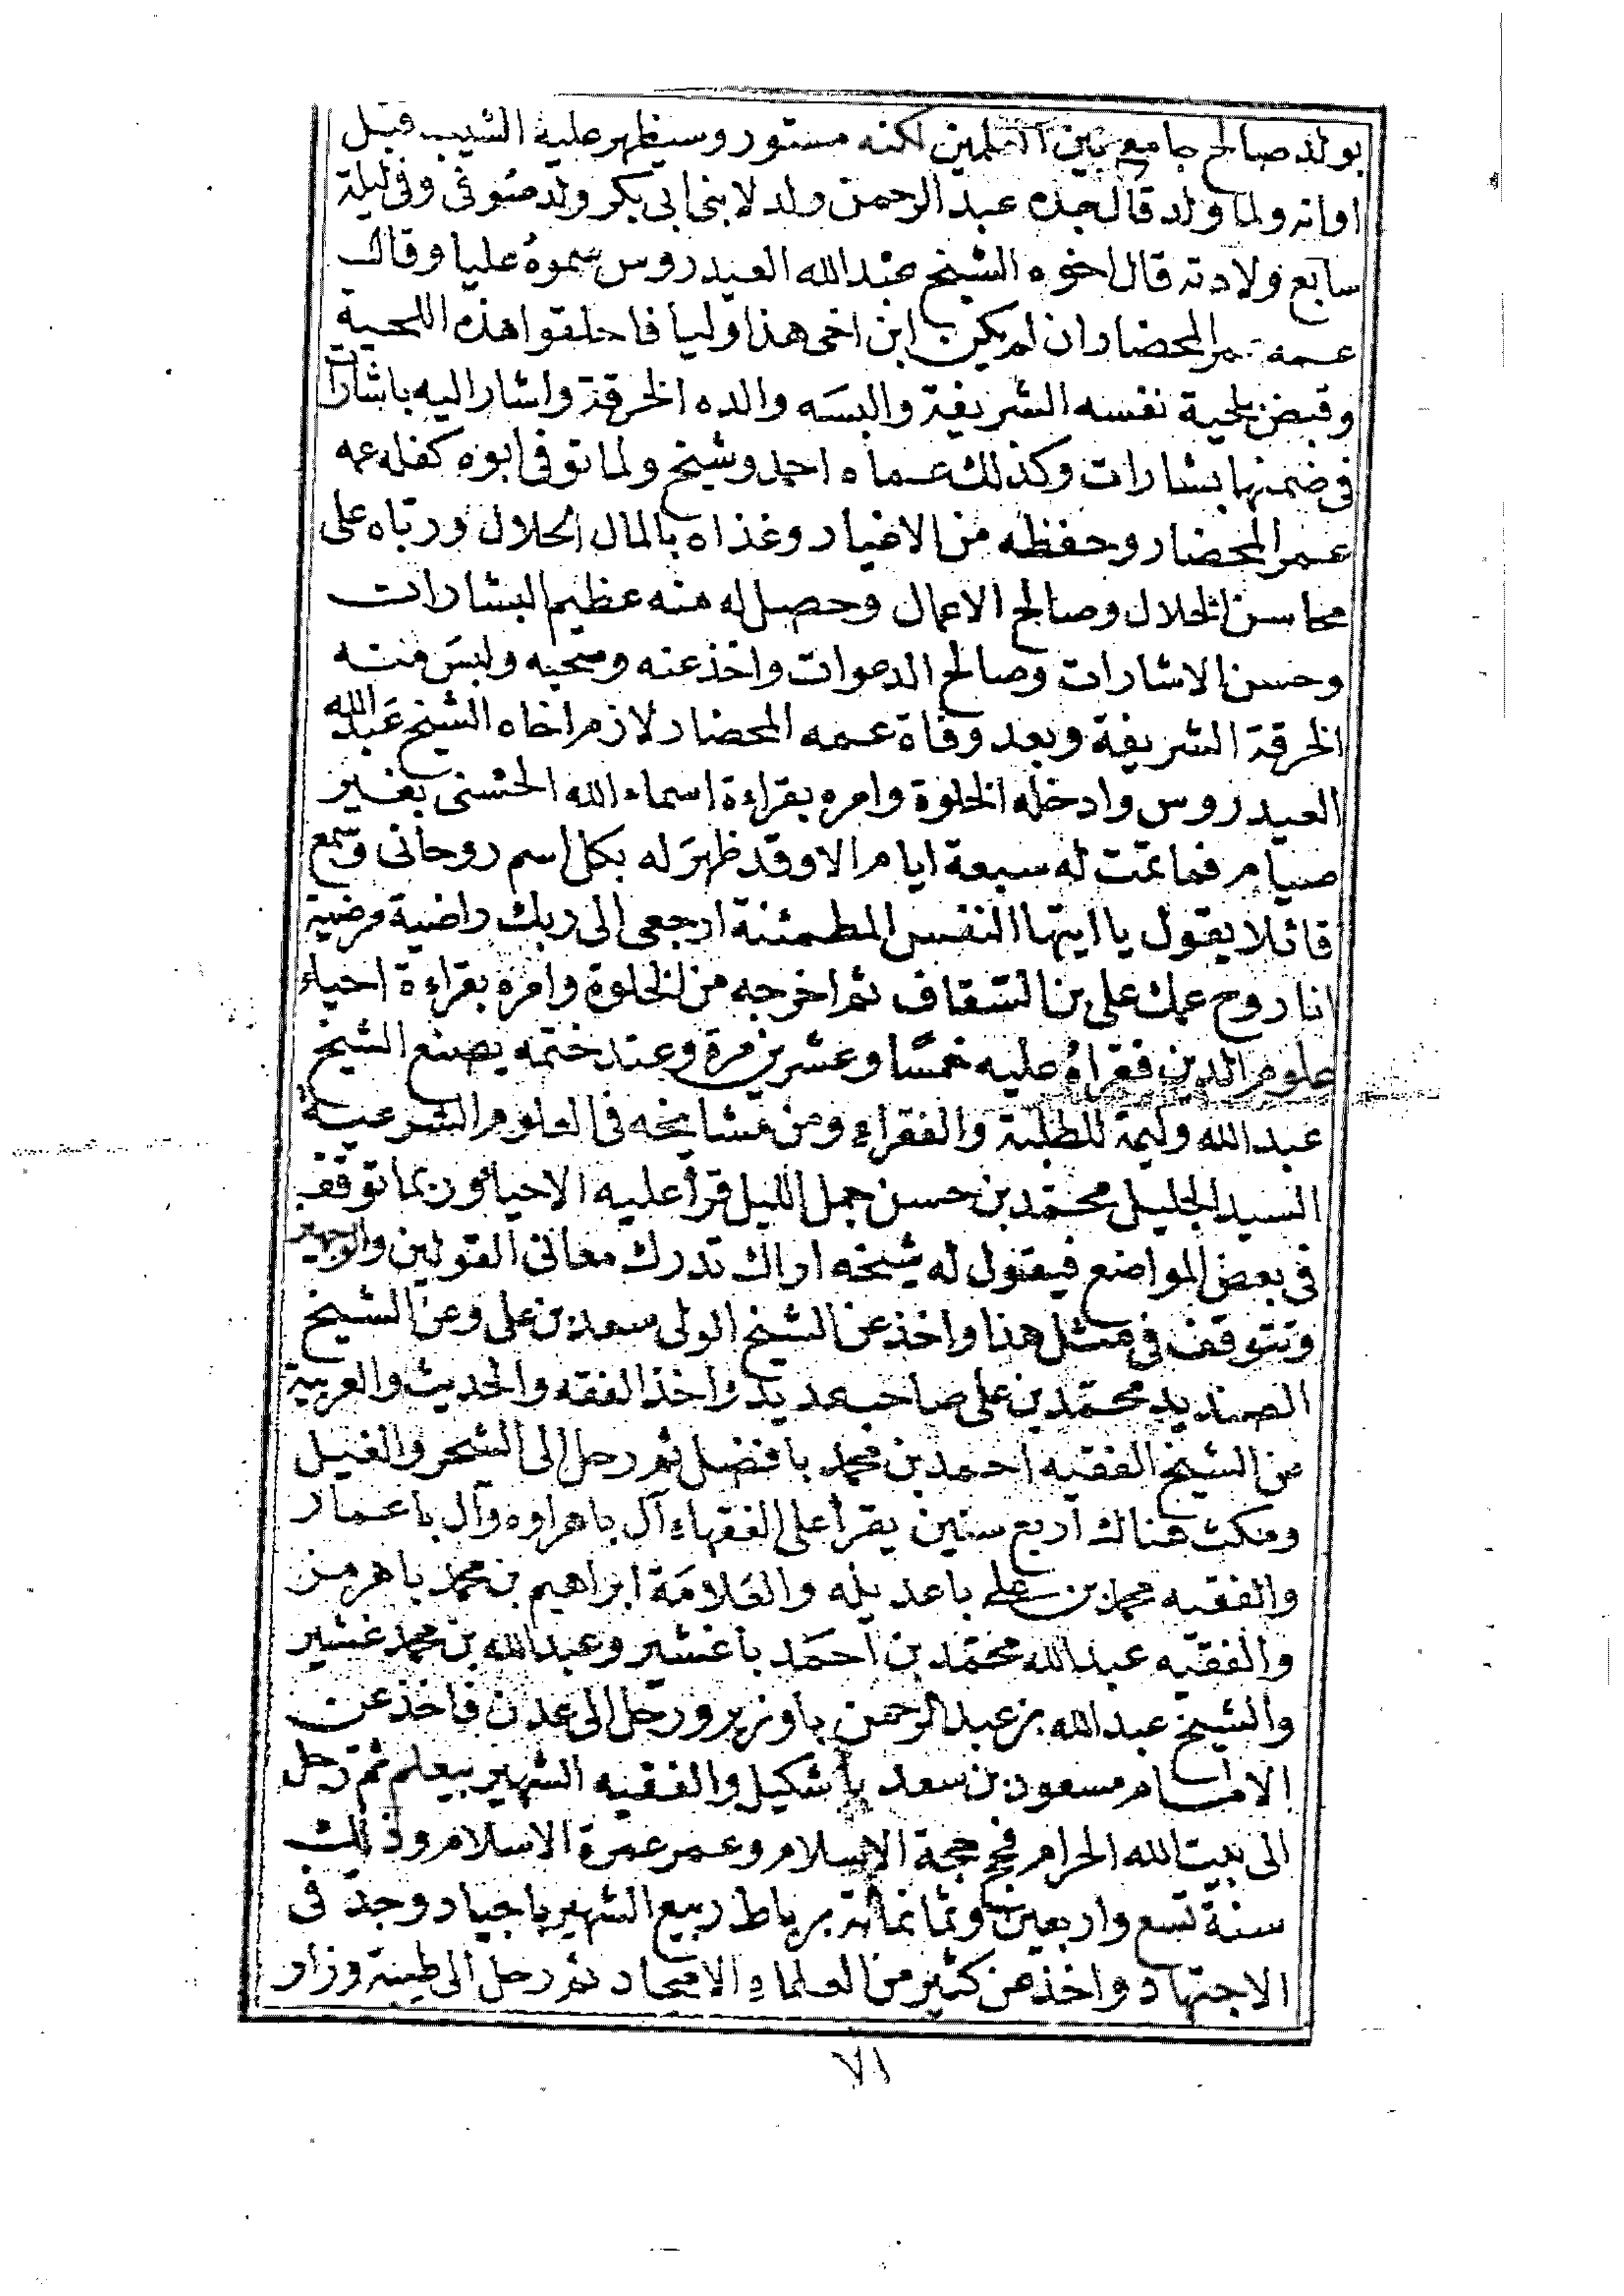 بولد صالح جامع بين العلمين لكنه مستور وسيظهر عليه الشيب قبل
اوانه ولما ولد قال جده عبد الرحمن ولد لابنى ابى بكر ولد صوفى وفى ليلة
سابع ولادته قال اخوه الشيخ عبد الله العيدروس سموه عليا وقال
عمه عمر المحضار ان لم يكن ابن اخى هذا وليا فاحلقوا هذه اللحية
وقبض بلحية نفسه الشريفة والبسه والده الخرقة واشار اليه باشارات
فى ضمنها بشارات وكذلك عماه احمد وشيخ ولما توفى ابوه كفله عمه
عمر المحضار وحفظه من الاغيار وغذاه بالمال الحلال ورباه على
محاسن الخلال وصالح الاعمال وحصل له منه عظيم البشارات
وحسن الاشارات وصالح الدعوات واخذ عنه وصحبه ولبس منه
الخرقة الشريفة وبعد وفاة عمه المحضار لازم اخاه الشيخ عبد الله
العيدروس وادخله الخلوة وامره بقراءة اسماء الله الحسنى بغير
صيام فما تمت له سبعة ايام الا وقد ظهر له بكل اسم روحانى وسمع
قائلا يقول يا ايتها النفس المطمئنة ارجعى الى ربك راضية مرضية
انا روح عمك على بن السقاف ثم اخرجه من الخلوة وامره بقراءة احياء
علوم الدين فقراه عليه خمسا وعشرين مرة وعند ختمه يصنع الشيخ
عبد الله وليمة للطلبة والفقراء ومن مشايخه فى العلوم الشرعية
السيد الجليل محمد بن حسن جمل الليل قرأ عليه الاحياء وربما توقف
فى بعض المواضع فيقول له شيخه اراك تدرك معانى القولين والوجهين
وتتوقف فى مثل هذا واخذ عن الشيخ الولى سعد بن على وعن الشيخ
الصنديد محمد بن على صاحب عديد واخذ الفقه والحديث والعربية
من الشيخ الفقيه احمد بن محمد بافضل ثم رحل الى الشحر والغيل
ومكث هناك اربع سنين يقرأ على الفقهاء آل باهراوه وآل باعمار
والفقيه محمد بن على باعديله والعلامة ابراهيم بن محمد باهرمز
والفقيه عبد الله محمد بن احمد باغشير وعبد الله بن محمد غشير
والشيخ عبد الله بن عبد الرحمن باوزير ورحل الى عدن فاخذ عن
الامام مسعود بن سعد باشكيل والفقيه الشهير بيعلم ثم رحل
الى بيت الله الحرام فحج حجة الاسلام وعمر عمرة الاسلام وذلك
سنة تسع واربعين وثمانمائة برباط ربيع الشهير باجياد وجد فى
الاجتهاد واخذ عن كثير من العلماء الامجاد ثم رحل الى طيبة وزار
٧١